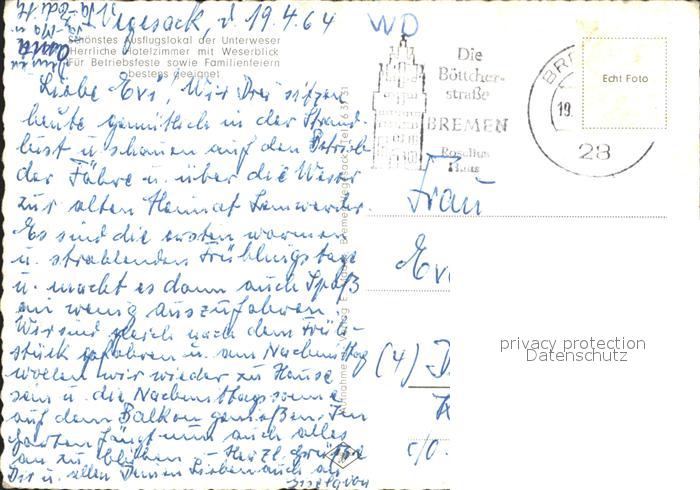 Vegesack, d. 19.4.64
Schönstes Ausflugslokal der Unterweser
Herrliche Hotelzimmer mit Weserblick
Für Betriebsfeste sowie Familienfeiern
bestens geeignet
Liebe Evi! Wir Drei sitzen
heute gemütlich in der Strand-
lust u. schauen auf den Betrieb
der Fähre u. über die Weser
zur alten Heimat Lemwerder.
Es sind die ersten warmen
u. strahlenden Frühlingstage
u. macht es dann auch Spaß
ein wenig auszufahren.
Wir sind gleich nach dem Früh-
stück gefahren u. am Nachmittag
wollen wir wieder zu Hause
sein u. die Nachmittagssonne
auf dem Balkon genießen. Im
Garten fängt nun auch alles
an zu blühen. - Herzl. Grüße
Dir u. allen Deinen Lieben auch an
WD
Die
Böttcher-
straße
BREMEN
Roselius
Haus
BRE
19.
28
Echt Foto
Frau
Ev
(4)
c/o.
privacy protection
Datenschutz